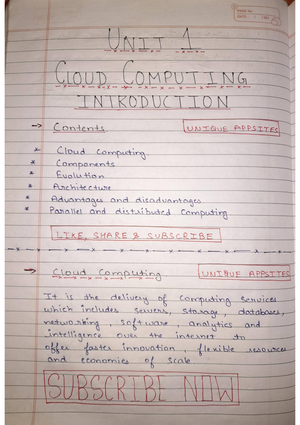 UNIT 1
CLOUD COMPUTING
INTRODUCTION
→ Contents UNIQUE APPSITES
* Cloud Computing
* Components
* Evolution
* Architecture
* Advantages and disadvantages
* Parallel and distributed computing
LIKE, SHARE & SUBSCRIBE
→ Cloud Computing UNIQUE APPSITES
It is the delivery of computing services
which includes servers, storage, databases,
networking, software, analytics and
intelligence over the internet to
offer faster innovation, flexible resources
and economies of scale
SUBSCRIBE NOW